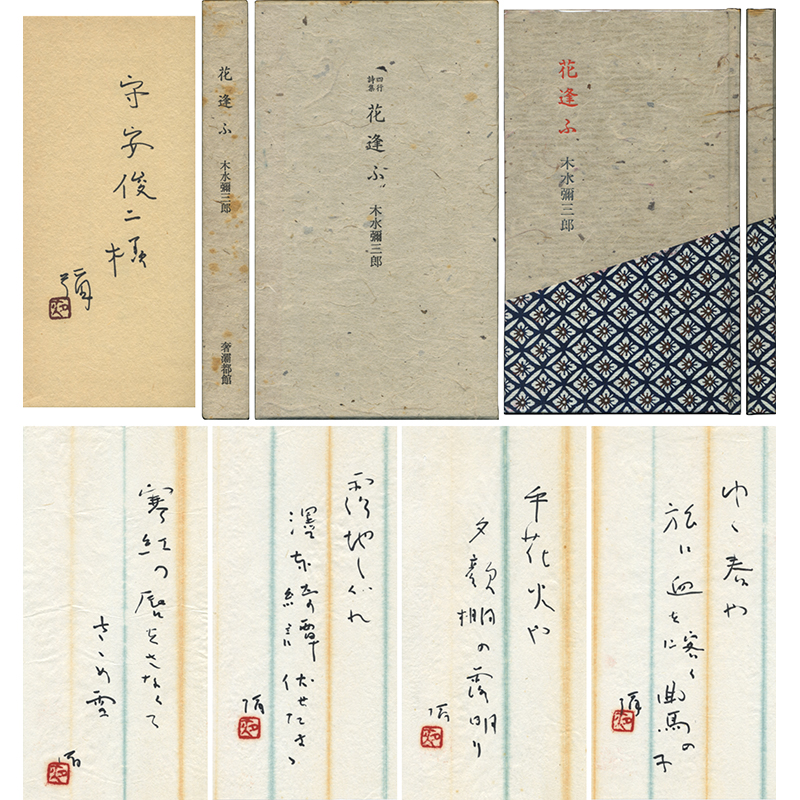 守安俊二様
彌
花逢ふ 木水彌三郎 奢灞都館
四行詩集
花逢ふ 木水彌三郎
花逢ふ
木水彌三郎
寒紅の唇をさなくて
さゝめ雪
彌
露地しぐれ
伏せたまゝ
彌
手花火や
夕顔棚の露明り
彌
ゆく春や
旅に血を喀く曲馬の子
彌